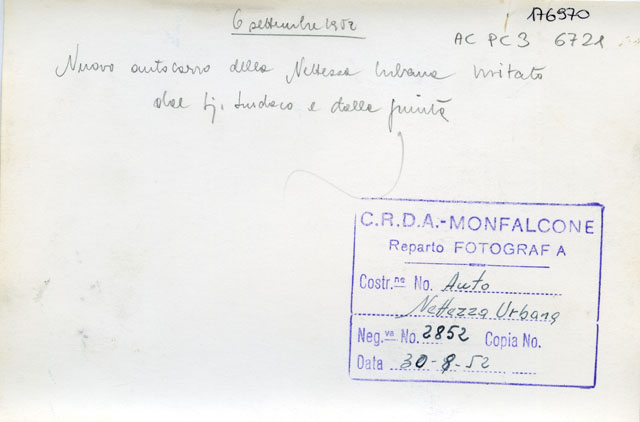 6 settembre 1952
176970
AC PC 3 6721
Nuovo autocarro della Nettezza Urbana visitato
dal Sig. Sindaco e dalla giunta
C.R.D.A.-MONFALCONE
Reparto FOTOGRAF A
Costr.ne No. Auto
Nettezza Urbana
Neg.va No. 2852 Copia No.
Data 30-8-52